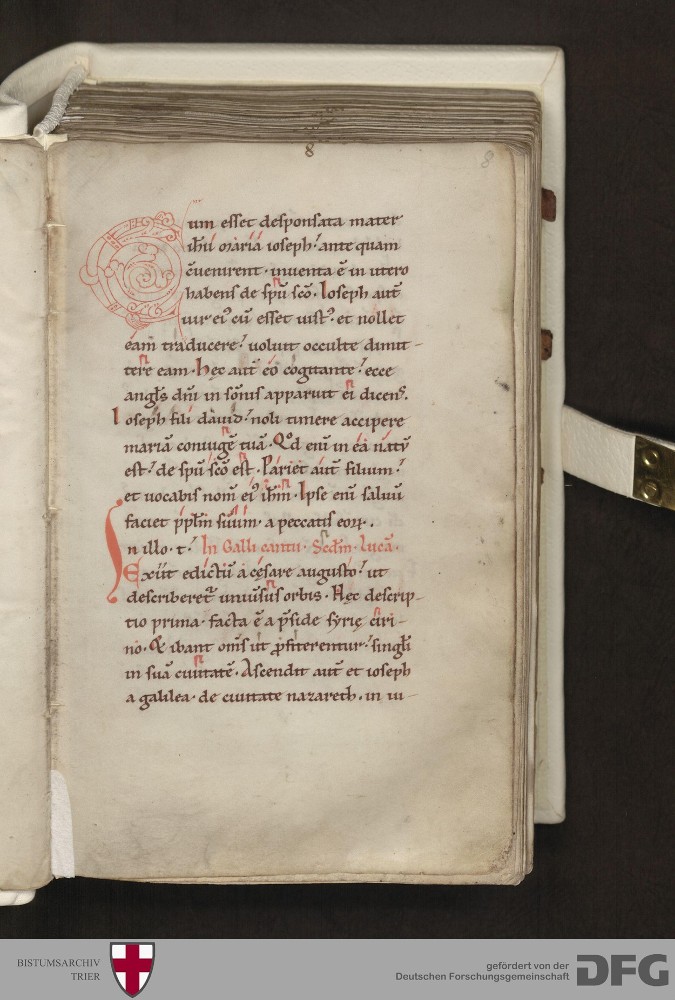 8
8
Cum esset desponsata mater
ih̄u maria ioseph. ante quam
c̄uenirent. inuenta ē in utero
habens de sp̄u sc̄o. Ioseph aut̄
uir ei᾽ cū esset iust᾽. et nollet
eam traducere. uoluit occulte dimit-
tere eam. Hęc aut̄ eo cogitante. ecce
angl̄s dn̄i in somnis apparuit ei dicens.
Ioseph fili dauid. noli timere accipere
mariā coniugē tuā. Qd̄ enī in ea natū
est. de sp̄u sc̄o est. Pariet aut̄ filium.
et uocabis nom̄ ei᾽ ih̄m. Ipse enī saluū
faciet pp̄lm suum. a peccatis eoꝝ.
In illo. t. In Galli cantu. Scd̄m. lucā.
Exiit edictū a cęsare augusto. ut
describeret᾽ uniuersus orbis. Hęc descrip-
tio prima. facta ē a p̄side syrię ciri-
no. Et ibant om̄s ut ꝓfiterentur. singli
in suā ciuitatē. Ascendit aut̄ et ioseph
a galilea. de ciuitate nazareth. in iu-
BISTUMSARCHIV
TRIER
gefördert von der
Deutschen Forschungsgemeinschaft
DFG